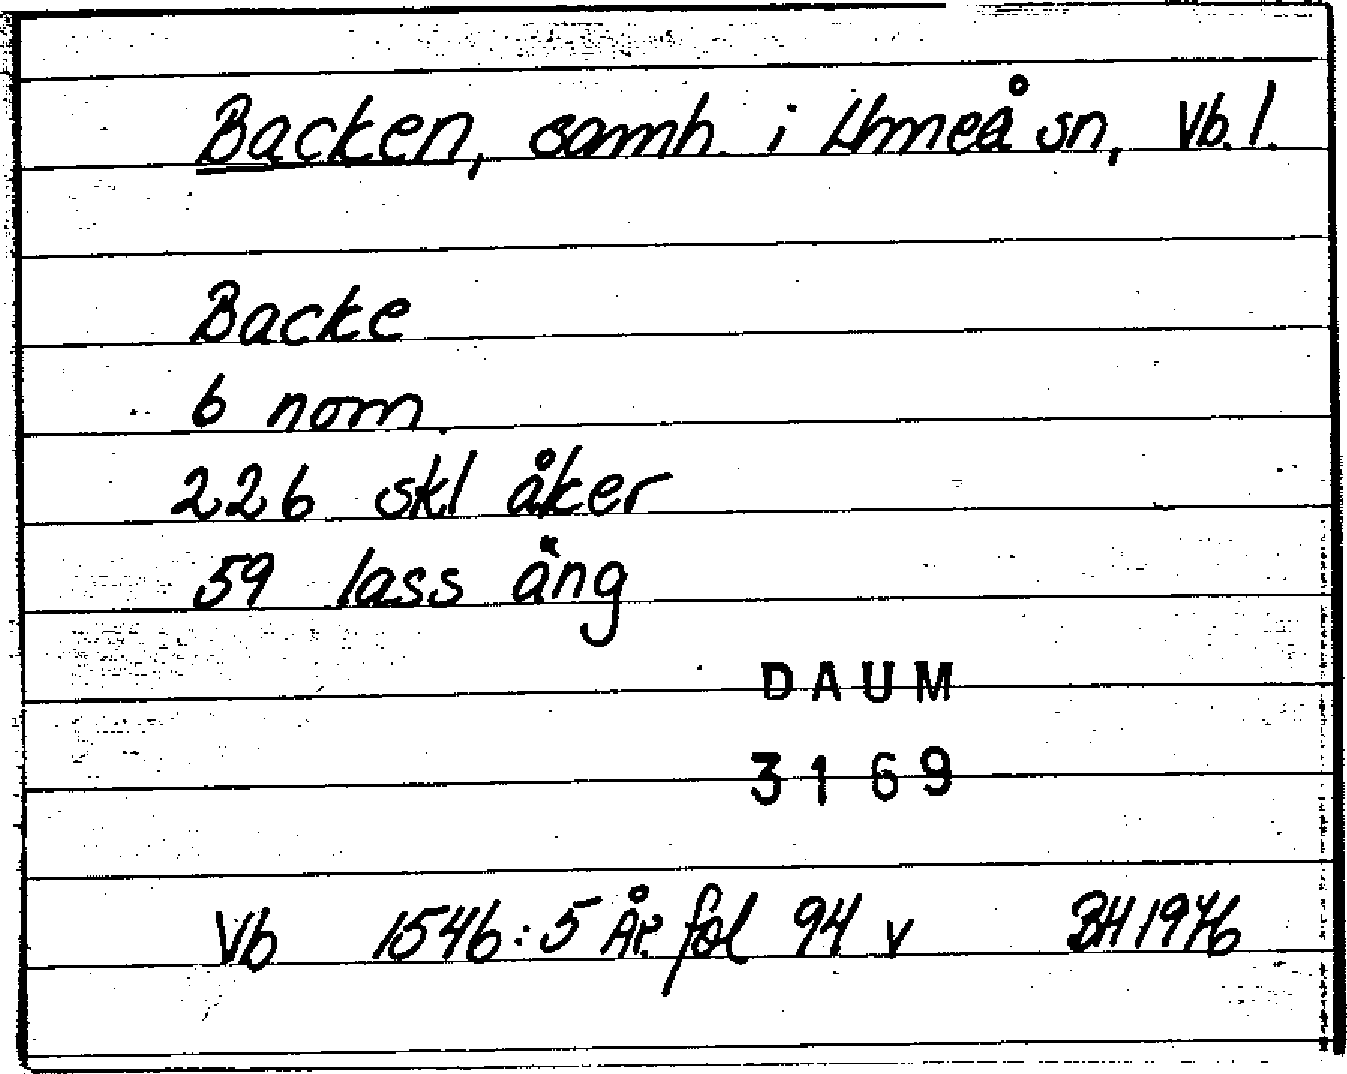 Backen, samh. i Umeå sn, Vb. l.
Backe
6 nom.
226 skl åker
59 lass äng
DAUM
3169
Vb 1546:5 År. fol 94 v BH 1976